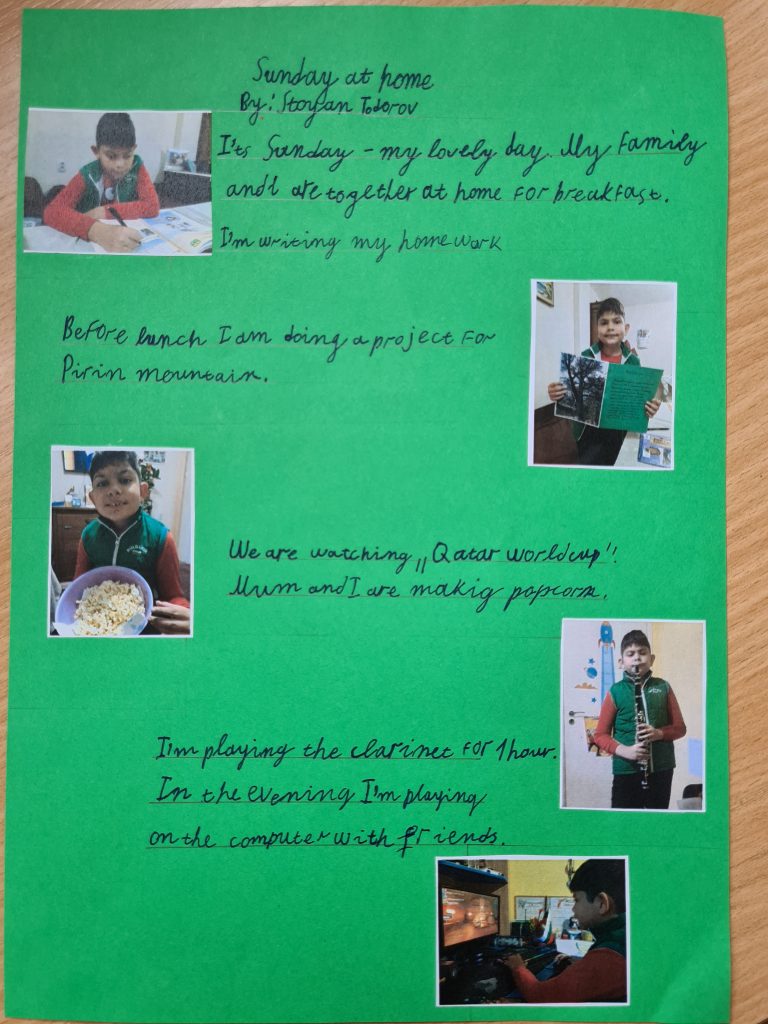 Sunday at home
By: Stoyan Todorov
I'ts Sunday - my lovely day. My family
and I are together at home for breakfast.
I'm writing my homework
Before lunch I am doing a project for
Pirin mountain.
We are watching „Qatar worldcup"!
Mum and I are makig popcorn.
I'm playing the clarinet for 1 hour.
In the evening I'm playing
on the computer with friends.